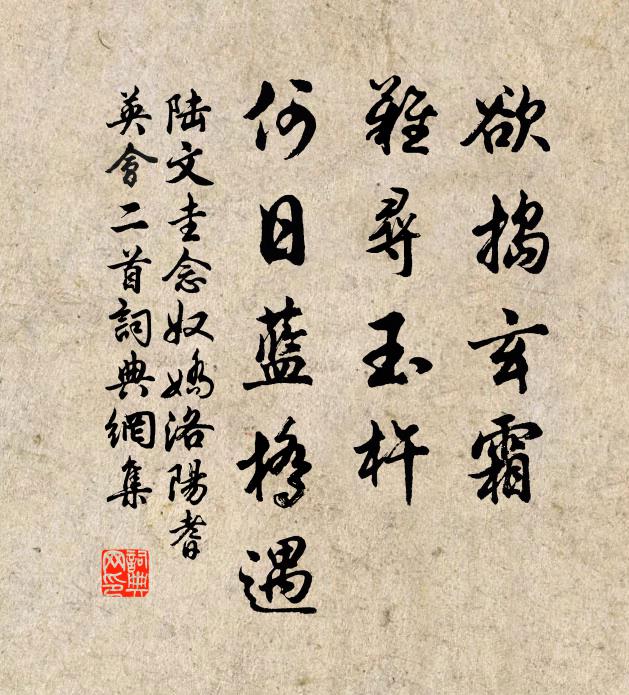 欲搗玄霜
難尋玉杵
何日藍橋遇
陸文圭念奴嬌洛陽耆
英會二首詞典網集
詞典
网印